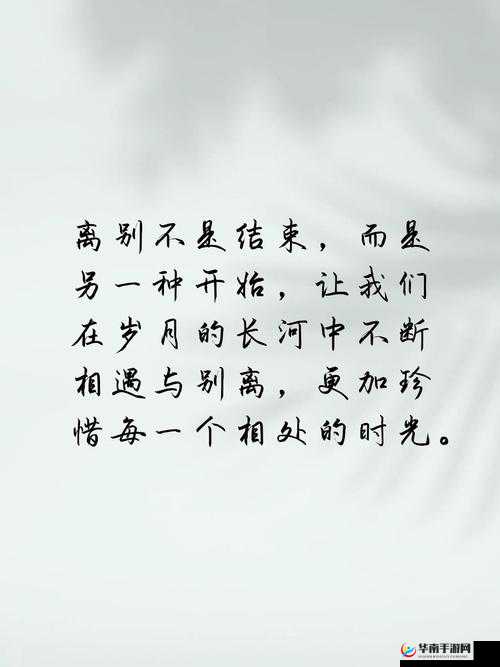 离别不是结束，而是
另一种开始，让我们
在岁月的长河中不断
相遇与别离，更加珍
惜每一个相处的时光。
华南手游网